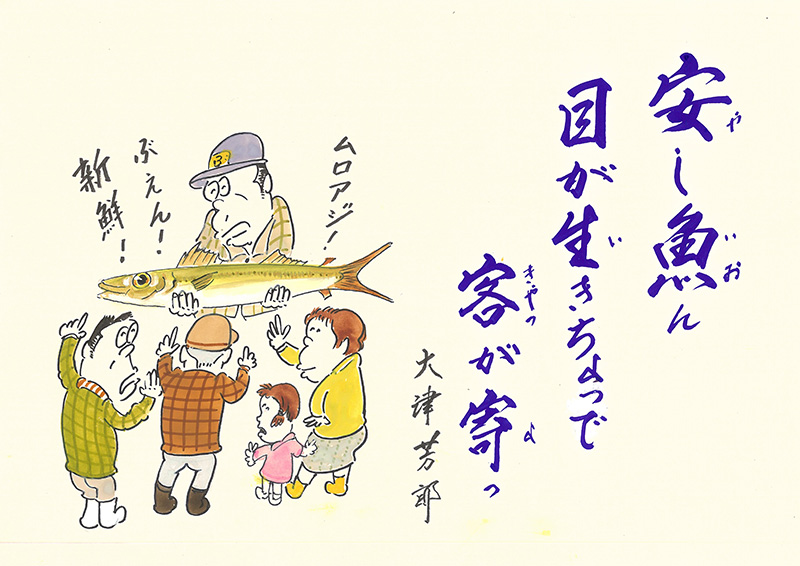 安し魚ん
やいお
目が生きちょっで
い
客が寄っ
きゃっよ
大津芳郎
ムロアジ!
ぶえん!
新鮮!